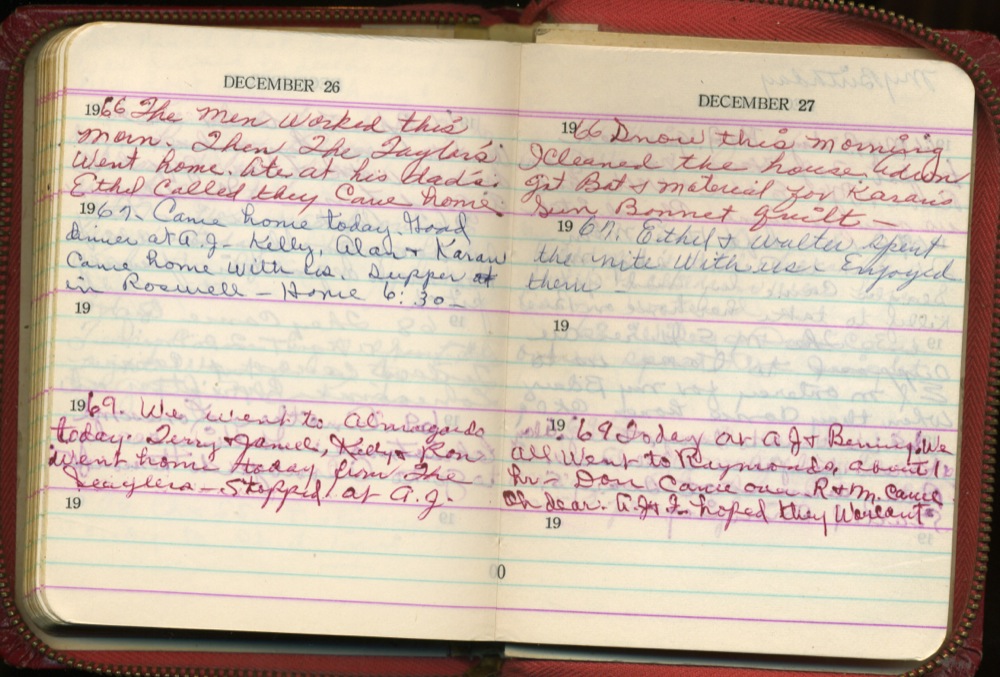 DECEMBER 26
1966 The men worked this
morn. Then The Taylors
Went home. Ate at his Dad's.
Ethel Called they Came home.
1967. Came home today. Good
dinner at A.J. - Kelly, Alan + Karan
Came home with us. Supper at
in Roswell - Home 6:30 -
19
1969. We went to Almagordo
today. Terry + Janice, Kelly + Ron
Went home today from The
Stopped at A.J.
19
DECEMBER 27
1966 Snow this morning
I Cleaned the house.
got Bat + material for Karan's
Sun Bonnet Quilt -
1967. Ethel + Walter spent
the nite With us. Enjoyed
them -
19
1969 Today at A J +
We
all Went to Raymonds, about 1
hr - Don Came over. R + M. Came
Oh dear. A.J. + I hoped they
19